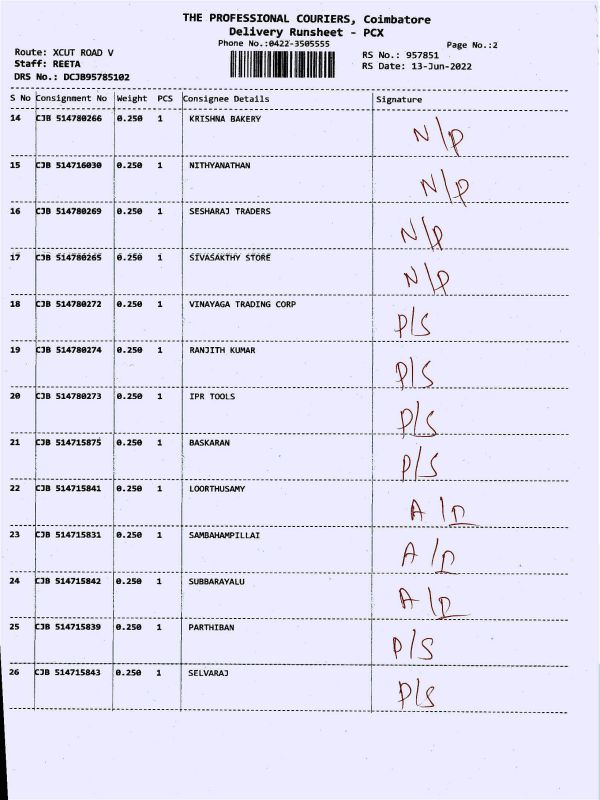 THE PROFESSIONAL COURIERS, Coimbatore
Delivery Runsheet - PCX
Phone No.:0422-3505555
Page No.:2
Route: XCUT ROAD V
RS No.: 957851
Staff: REETA
RS Date: 13-Jun-2022
DRS No.: DCJB95785102
S No Consignment No Weight PCS Consignee Details Signature
14 CJB 514780266 0.250 1 KRISHNA BAKERY N/P
15 CJB 514716030 0.250 1 NITHYANATHAN N/P
16 CJB 514780269 0.250 1 SESHARAJ TRADERS N/P
17 CJB 514780265 0.250 1 SIVASAKTHY STORE N/P
18 CJB 514780272 0.250 1 VINAYAGA TRADING CORP P/S
19 CJB 514780274 0.250 1 RANJITH KUMAR P/S
20 CJB 514780273 0.250 1 IPR TOOLS P/S
21 CJB 514715875 0.250 1 BASKARAN P/S
22 CJB 514715841 0.250 1 LOORTHUSAMY A/D
23 CJB 514715831 0.250 1 SAMBAHAMPILLAI A/D
24 CJB 514715842 0.250 1 SUBBARAYALU A/D
25 CJB 514715839 0.250 1 PARTHIBAN P/S
26 CJB 514715843 0.250 1 SELVARAJ P/S